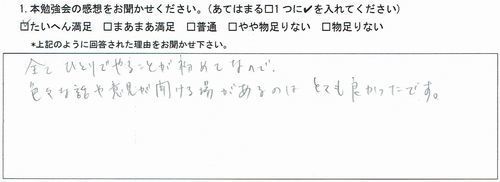 1. 本勉強会の感想をお聞かせください。(あてはまる□1つに✔を入れてください)
☑たいへん満足 □まあまあ満足 □普通 □やや物足りない □物足りない
*上記のように回答された理由をお聞かせ下さい。
全て ひとりでやることが初めてなので、
色々な話や意見が聞ける場があるのは とても良かったです。